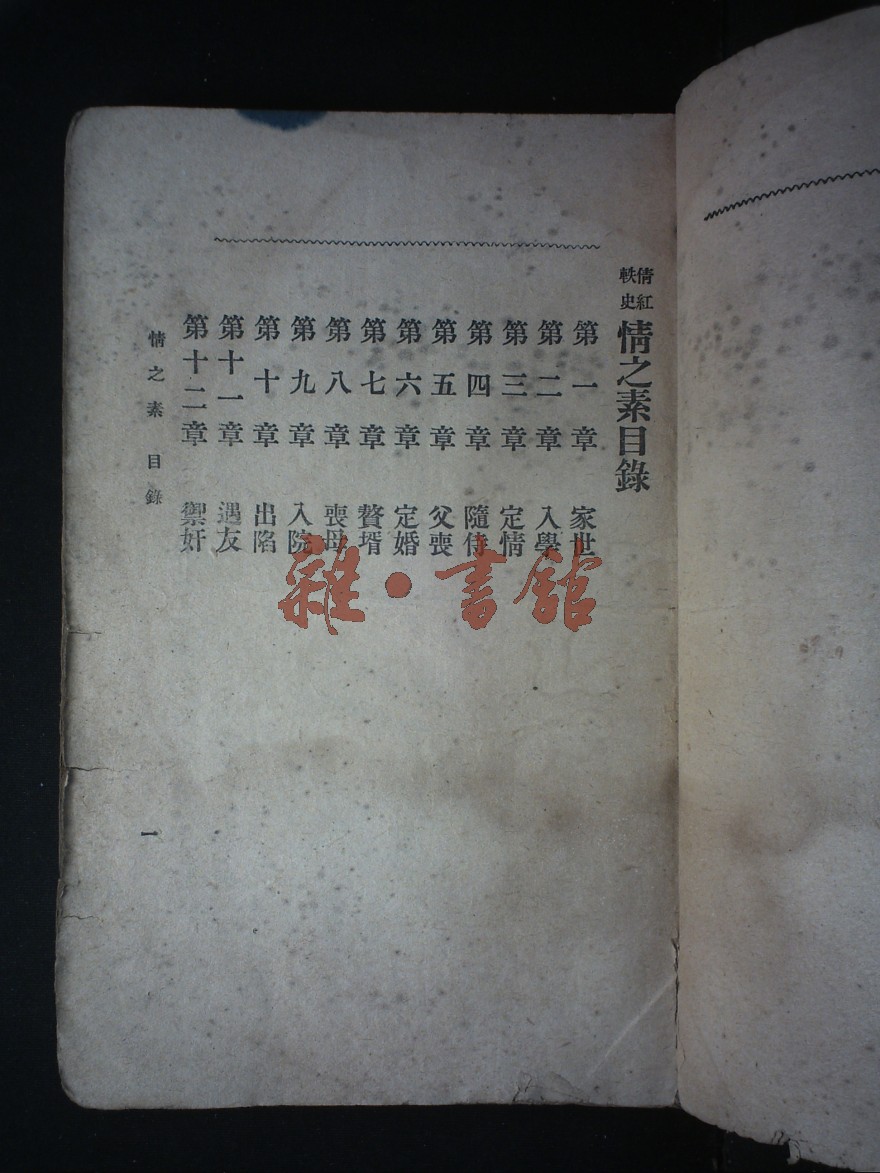 倩紅軼史
情之素目錄
第一章 家世
第二章 入學
第三章 定情
第四章 隨侍
第五章 父喪
第六章 定婚
第七章 贅壻
第八章 喪母
第九章 入院
第十章 出陷
第十一章 遇友
第十二章 禦奸
情之素 目錄
一
雜·書館